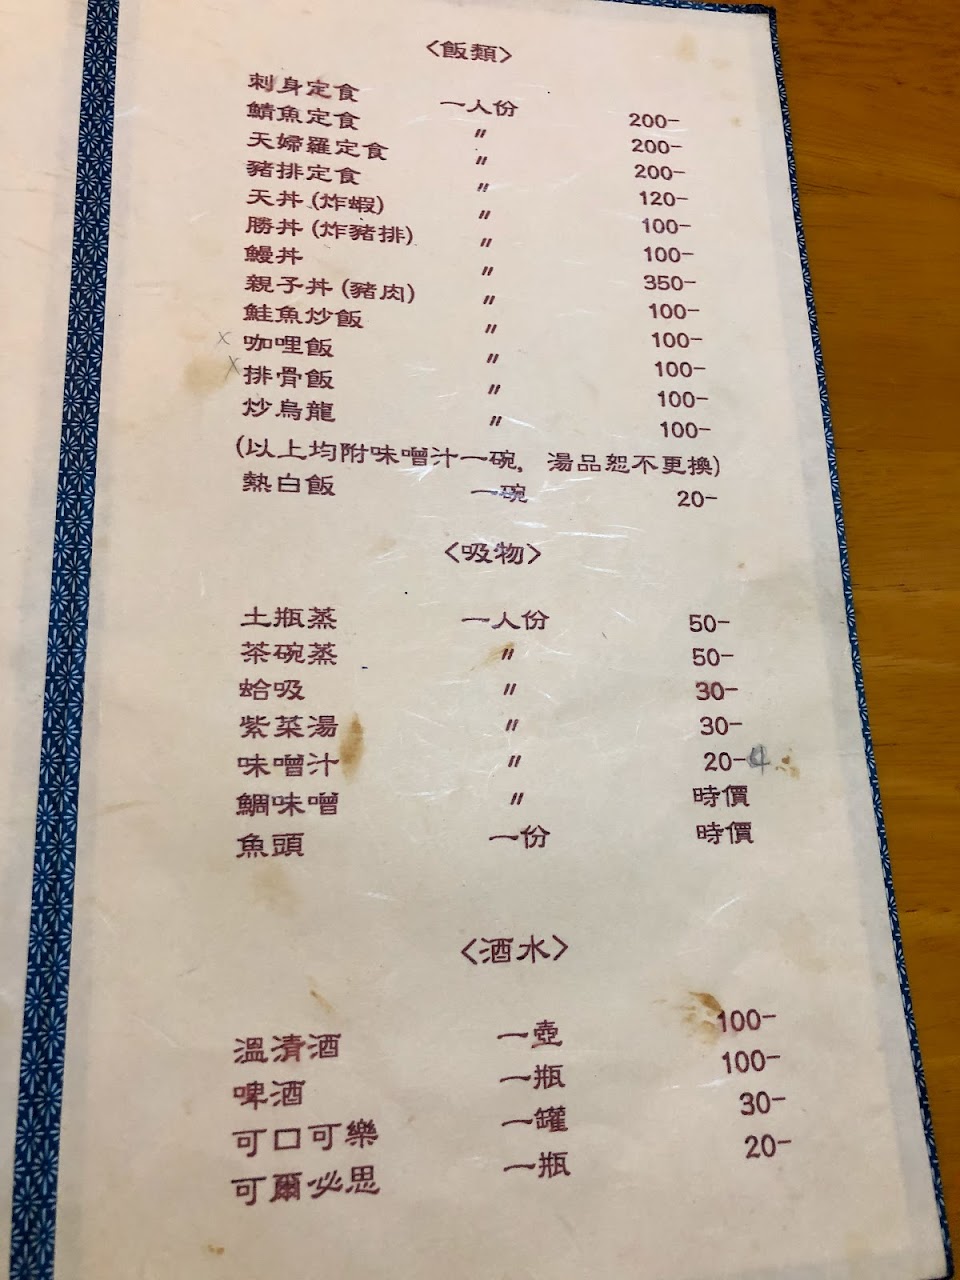 〈飯類〉
刺身定食 一人份 200-
鯖魚定食 〃 200-
天婦羅定食 〃 200-
豬排定食 〃 120-
天丼(炸蝦) 〃 100-
勝丼(炸豬排) 〃 100-
鰻丼 〃 350-
親子丼(豬肉) 〃 100-
鮭魚炒飯 〃 100-
x 咖哩飯 〃 100-
x 排骨飯 〃 100-
炒烏龍 〃 100-
(以上均附味噌汁一碗，湯品恕不更換)
熱白飯 一碗 20-
〈吸物〉
土瓶蒸 一人份 50-
茶碗蒸 〃 50-
蛤吸 〃 30-
紫菜湯 〃 30-
味噌汁 〃 20-
鯛味噌 〃 時價
魚頭 一份 時價
〈酒水〉
溫清酒 一壺 100-
啤酒 一瓶 100-
可口可樂 一罐 30-
可爾必思 一瓶 20-